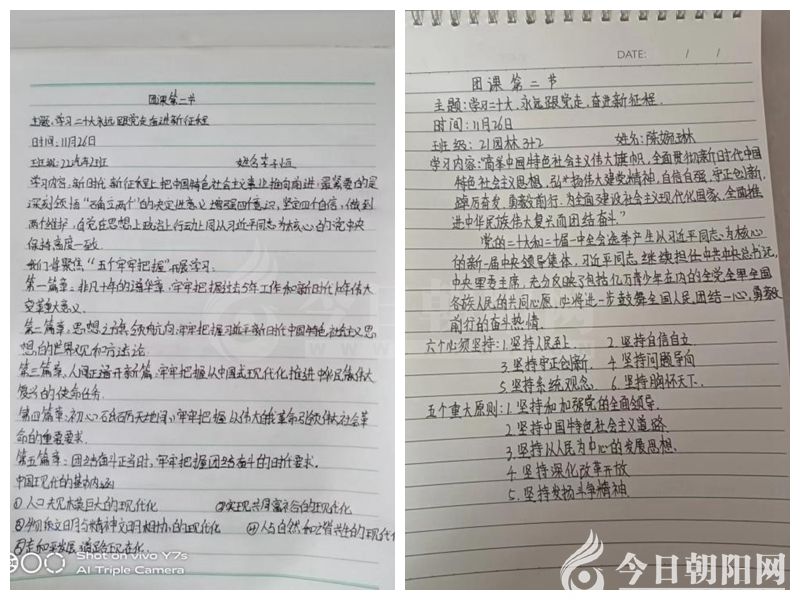 团课第二节
主题:学习二十大永远跟党走奋进新征程
时间:11月26日
班级:22汽车2班 姓名:李子恒
学习内容:新时代新征程上把中国特色社会主义事业推向前进,最紧要的是
深刻领悟“两个确立”的决定性意义,增强四个意识,坚定四个自信,做到
两个维护,自觉在思想上政治上行动上同以习近平同志为核心的党中央
保持高度一致
我们将聚焦“五个牢牢把握”开展学习:
第一篇章:非凡十年的清华章,牢牢把握过去5年工作和新时代十年伟大
变革重大意义.
第二篇章:思想之旗领航向,牢牢把握习近平新时代中国特色社会主义思
想的世界观和方法论
第三篇章:人间正道开新篇,牢牢把握以中国式现代化推进中华民族伟大
复兴的使命任务
第四篇章:初心 牢牢把握以伟大自我革命引领伟大社会革
命的重要要求.
第五篇章:团结奋斗正当时,牢牢把握团结奋斗的时代要求.
中国现代化的基本内涵
①人口规模巨大的现代化 ②实现共同富裕的现代化
③物质文明与精神文明相协的现代化 ④人与自然和谐共生的现代化
⑤走和平发展道路现代化
Shot on vivo Y7s
AI Triple Camera
DATE: / /
团课第二节
主题:学习二十大,永远跟党走,奋进新征程.
时间:11月26日
班级:21园林3+2 姓名:陈婉琳
学习内容:“高举中国特色社会主义伟大旗帜,全面贯彻新时代中国
特色社会主义思想,弘扬伟大建党精神,自信自强,守正创新,
踔厉奋发,勇毅前行,为全面建设社会主义现代化国家、全面推
进中华民族伟大复兴而团结奋斗”
党的二十大和二十届一中全会选举产生以习近平同志为核心
的新一届中央领导集体,习近平同志继续担任中共中央总书记,
中央军委主席,充分反映了包括亿万青少年在内的全党全军全国
各族人民的共同心愿,必将进一步鼓舞全国人民团结一心,勇毅
前行的奋斗热情.
六个必须坚持:1.坚持人民至上 2.坚持自信自立
3.坚持守正创新. 4.坚持问题导向
5.坚持系统观念. 6.坚持胸怀天下.
五个重大原则:1.坚持和加强党的全面领导.
2.坚持中国特色社会主义道路
3.坚持以人民为中心的发展思想.
4.坚持深化改革开放
5.坚持发扬斗争精神
今日朝阳网
今日朝阳网